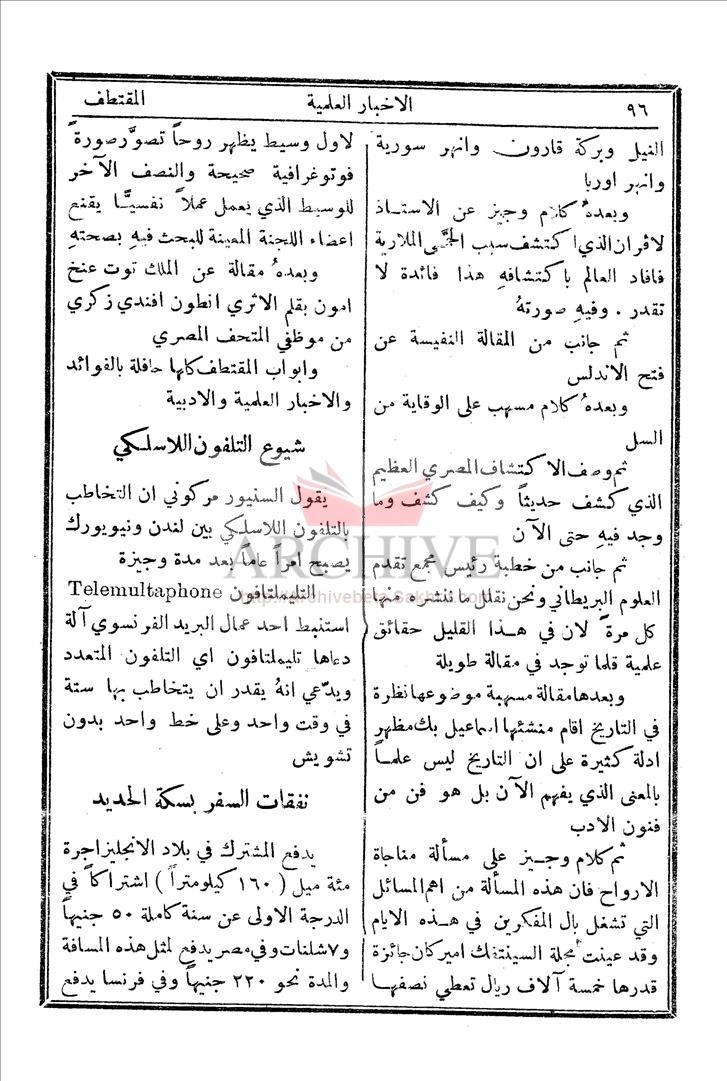 ٩٦
الاخبار العلمية
المقتطف
النيل وبركة قارون وانهر سورية
وانهر اوربا
وبعدهُ كلام وجيز عن الاستاذ
لاڤران الذي اكتشف سبب الحمَّى الملارية
فافاد العالم باكتشافهِ هذا فائدة لا
تقدر . وفيهِ صورتهُ
ثم جانب من المقالة النفيسة عن
فتح الاندلس
وبعدهُ كلام مسهب على الوقاية من
السل
ثم وصف الاكتشاف المصري العظيم
الذي كشف حديثاً وكيف كشف وما
وجد فيهِ حتى الآن
ثم جانب من خطبة رئيس مجمع تقدم
العلوم البريطاني ونحن نقلل ما ننشره منها
كل مرة لان في هذا القليل حقائق
علمية قلما توجد في مقالة طويلة
وبعدها مقالة مسهبة موضوعها نظرة
في التاريخ اقام منشئها اسماعيل بك مظهر
ادلة كثيرة على ان التاريخ ليس علماً
بالمعنى الذي يفهم الآن بل هو فن من
فنون الادب
ثم كلام وجيز على مسألة مناجاة
الارواح فان هذه المسألة من اهم المسائل
التي تشغل بال المفكرين في هذه الايام
وقد عينت مجلة السينتفك اميركان جائزة
قدرها خمسة آلاف ريال تعطي نصفها
لاول وسيط يظهر روحاً تصوَّر صورةً
فوتوغرافية صحيحة والنصف الآخر
للوسيط الذي يعمل عملاً نفسيًّا يقنع
اعضاء اللجنة المعينة للبحث فيهِ بصحتهِ
وبعدهُ مقالة عن الملك توت عنخ
امون بقلم الاثري انطون افندي زكري
من موظفي المتحف المصري
وابواب المقتطف كلها حافلة بالفوائد
والاخبار العلمية والادبية
شيوع التلفون اللاسلكي
يقول السنيور مركوني ان التخاطب
بالتلفون اللاسلكي بين لندن ونيويورك
يصبح امراً عاما بعد مدة وجيزة
التليملتافون Telemultaphone
استنبط احد عمال البريد الفرنسوي آلة
دعاها تليملتافون اي التلفون المتعدد
ويدّعي انهُ يقدر ان يتخاطب بها ستة
في وقت واحد وعلى خط واحد بدون
تشويش
نفقات السفر بسكة الحديد
يدفع المشترك في بلاد الانجليز اجرة
مئة ميل ( ١٦٠ كيلومتراً ) اشتراكاً في
الدرجة الاولى عن سنة كاملة ٥٠ جنيهاً
و٧ شلنات وفي مصر يدفع لمثل هذه المسافة
والمدة نحو ٢٢٠ جنيهاً وفي فرنسا يدفع
ARCHIVE